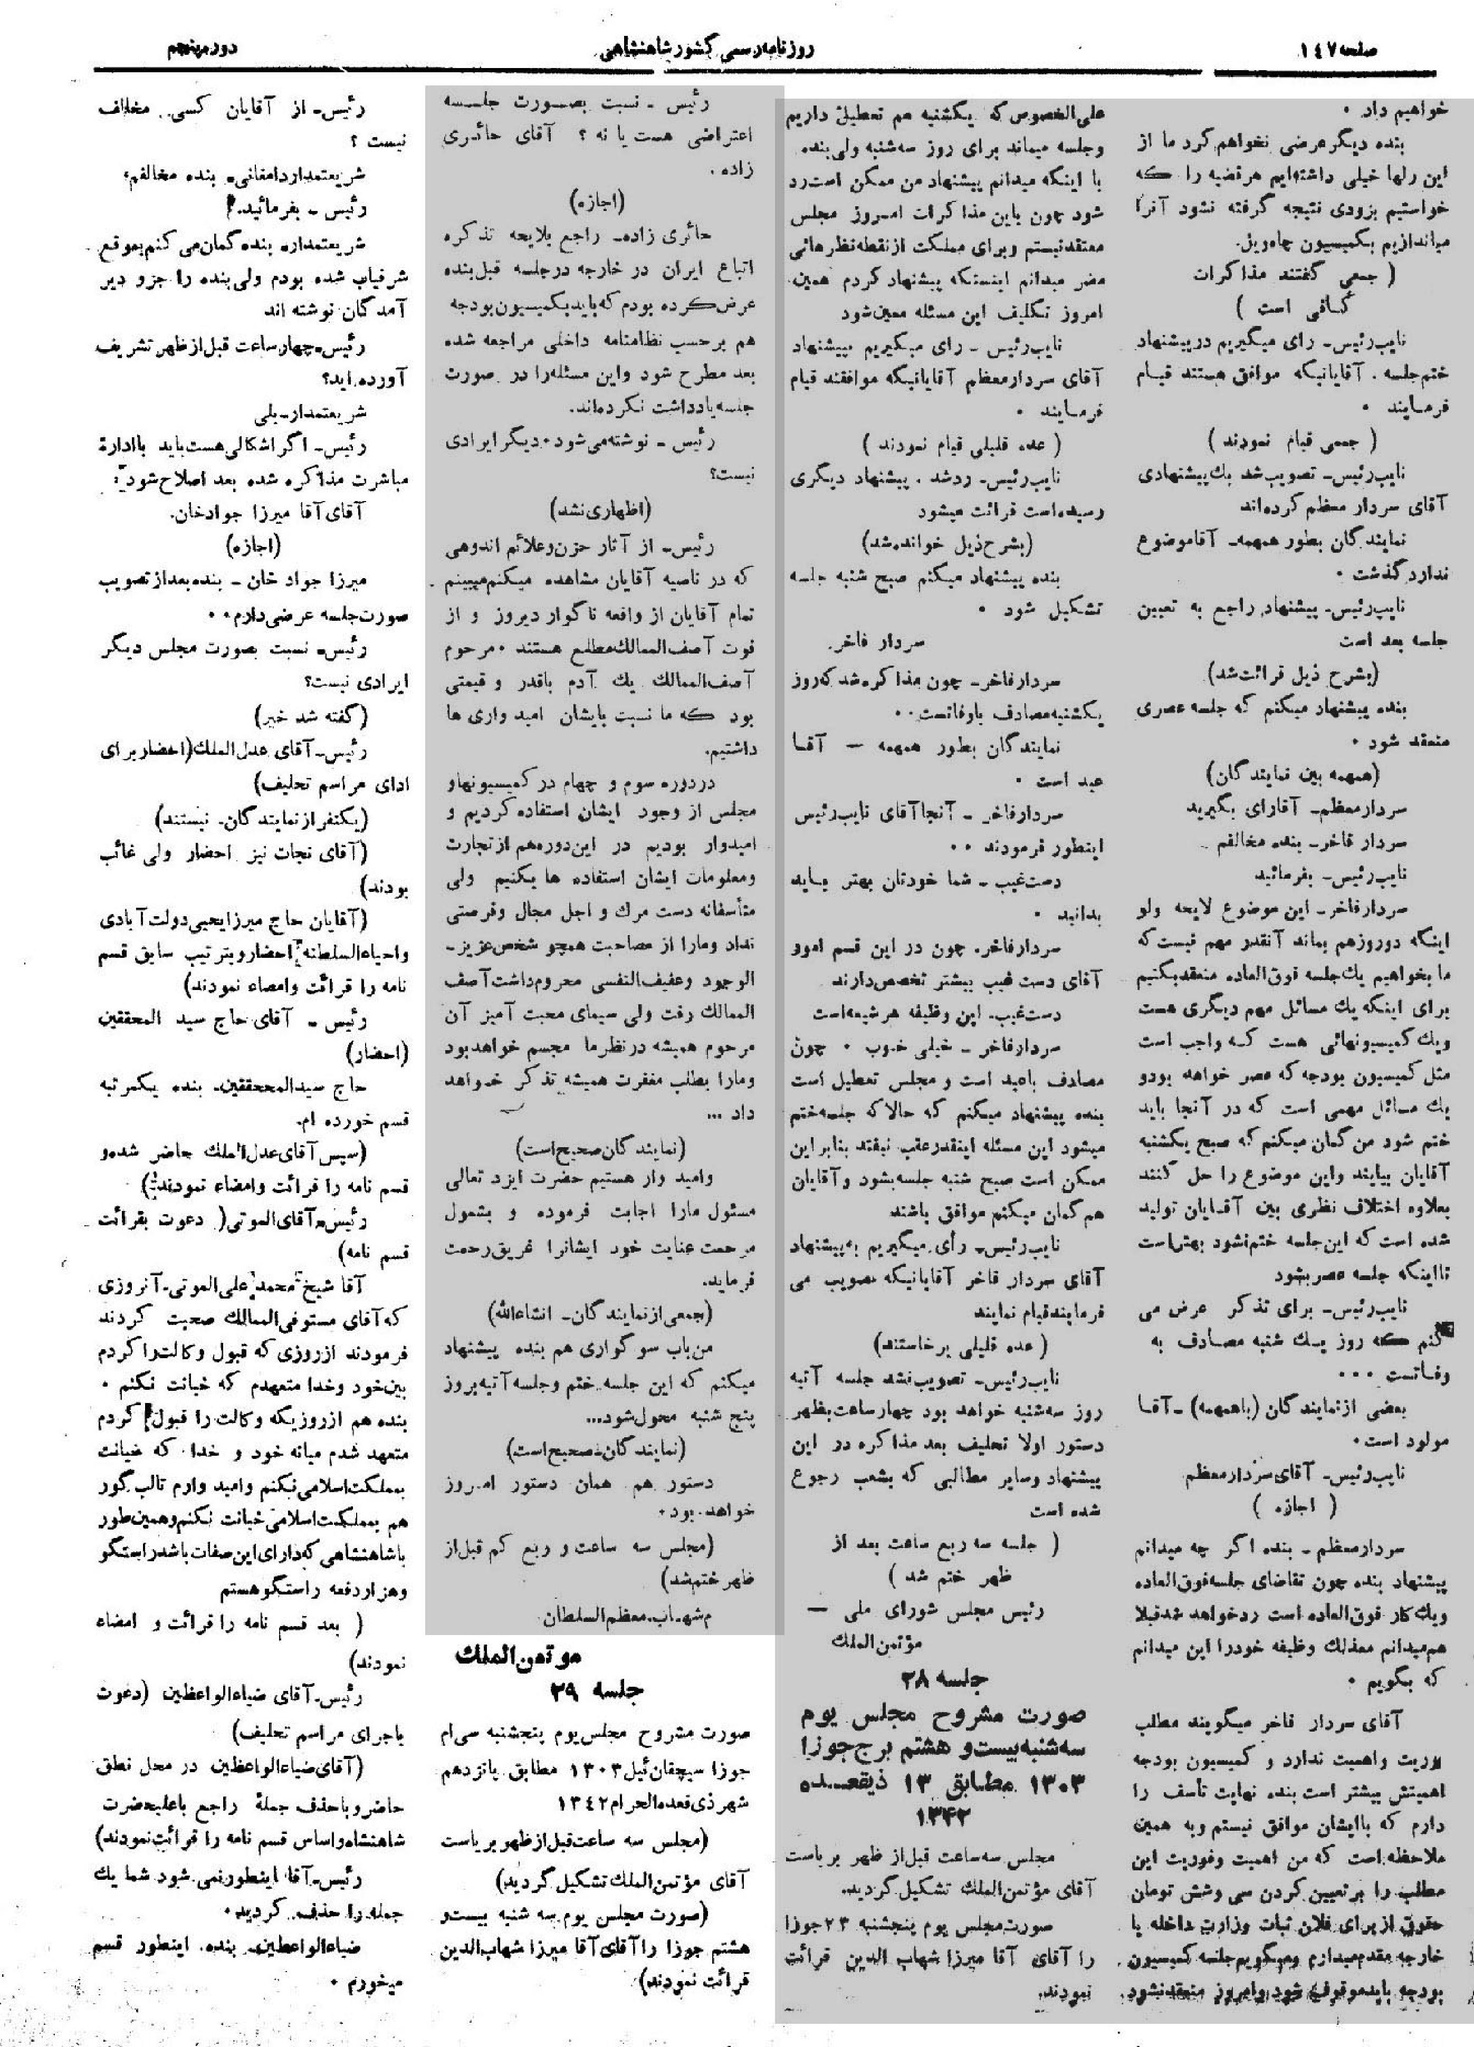 صفحه ۱۴۷
روزنامه رسمی کشور شاهنشاهی
دوره پنجم
خواهیم داد .
بنده دیگر عرضی نخواهم کرد ما از
این رلها خیلی داشته‌ایم هر قضیه را که
خواستیم بزودی نتیجه گرفته نشود آنرا
میاندازیم بکمیسیون چاه ویل.
( جمعی گفتند مذاکرات
کافی است )
نایب رئیس- رای میگیریم در پیشنهاد
ختم جلسه . آقایانیکه موافق هستند قیام
فرمایند .
( جمعی قیام نمودند )
نایب رئیس- تصویب شد یك پیشنهادی
آقای سردار معظم کرده‌اند
نمایندگان بطور همهمه- آقا موضوع
ندارد گذشت .
نایب رئیس- پیشنهاد راجع به تعیین
جلسه بعد است
(بشرح ذیل قرائت شد)
بنده پیشنهاد میکنم که جلسه عصری
منعقد شود .
(همهمه بین نمایندگان)
سردار معظم- آقا رای بگیرید
سردار فاخر- بنده مخالفم
نایب رئیس- بفرمائید
سردار فاخر- این موضوع لایحه ولو
اینکه دو روز هم بماند آنقدر مهم نیست که
ما بخواهیم یك جلسه فوق العاده منعقد بکنیم
برای اینکه یك مسائل مهم دیگری هست
و یك کمیسیونهائی هست که واجب است
مثل کمیسیون بودجه که عصر خواهد بود و
یك مسائل مهمی است که در آنجا باید
ختم شود من گمان میکنم که صبح یکشنبه
آقایان بیایند و این موضوع را حل کنند
بعلاوه اختلاف نظری بین آقایان تولید
شده است که این جلسه ختم نشود بهتر است
تا اینکه جلسه عصر بشود
نایب رئیس- برای تذکر عرض می
کنم که روز یك شنبه مصادف به
وفاتست ...
بعضی از نمایندگان (با همهمه) - آقا
مولود است .
نایب رئیس- آقای سردار معظم
( اجازه )
سردار معظم - بنده اگر چه میدانم
پیشنهاد بنده چون تقاضای جلسه فوق العاده
و یك کار فوق العاده است رد خواهد شد قبلا
هم میدانم معذلك وظیفه خود را این میدانم
که بگویم .
آقای سردار فاخر میگویند مطلب
فوریت و اهمیت ندارد و کمیسیون بودجه
اهمیتش بیشتر است بنده نهایت تأسف را
دارم که با ایشان موافق نیستم و به همین
ملاحظه است که من اهمیت و فوریت این
مطلب را بر تعیین کردن سی و شش تومان
حقوق از برای فلان ثبات وزارت داخله یا
خارجه مقدم میدارم و میگویم جلسه کمیسیون
بودجه باید موقوف شود و امروز منعقد نشود
علی الخصوص که یکشنبه هم تعطیل داریم
و جلسه میماند برای روز سه شنبه ولی بنده
با اینکه میدانم پیشنهاد من ممکن است رد
شود چون باین مذاکرات امروز مجلس
معتقد نیستم و برای مملکت از نقطه نظرهائی
مضر میدانم اینستکه پیشنهاد کردم همین
امروز تکلیف این مسئله معین شود
نایب رئیس - رای میگیریم بپیشنهاد
آقای سردار معظم آقایانیکه موافقند قیام
فرمایند .
( عده قلیلی قیام نمودند )
نایب رئیس- رد شد . پیشنهاد دیگری
رسیده است قرائت میشود
(بشرح ذیل خوانده شد)
بنده پیشنهاد میکنم صبح شنبه جلسه
تشکیل شود .
سردار فاخر.
سردار فاخر- چون مذاکره شد که روز
یکشنبه مصادف با وفاتست . .
نمایندگان بطور همهمه — آقا
عید است .
سردار فاخر - آنجا آقای نایب رئیس
اینطور فرمودند . .
دست غیب - شما خودتان بهتر باید
بدانید .
سردار فاخر. چون در این قسم امور
آقای دست غیب بیشتر تخصص دارند
دست غیب. این وظیفه هر شیعه است
سردار فاخر - خیلی خوب . چون
مصادف با عید است و مجلس تعطیل است
بنده پیشنهاد میکنم که حالا که جلسه ختم
میشود این مسئله اینقدر عقب نیفتد بنابر این
ممکن است صبح شنبه جلسه بشود و آقایان
هم گمان میکنم موافق باشند
نایب رئیس- رأی میگیریم به پیشنهاد
آقای سردار فاخر آقایانیکه تصویب می
فرمایند قیام نمایند
( عده قلیلی برخاستند)
نایب رئیس- تصویب نشد جلسه آتیه
روز سه شنبه خواهد بود چهار ساعت بظهر
دستور اولا تحلیف بعد مذاکره در این
پیشنهاد و سایر مطالبی که بشعب رجوع
شده است
( جلسه سه ربع ساعت بعد از
ظهر ختم شد )
رئیس مجلس شورای ملی —
مؤتمن الملك
جلسه ۲۸
صورت مشروح مجلس یوم
سه شنبه بیست و هشتم برج جوزا
۱۳۰۳ مطابق ۱۳ ذیقعده
۱۳۴۲
مجلس سه ساعت قبل از ظهر بریاست
آقای مؤتمن الملك تشکیل گردید.
صورت مجلس یوم پنجشنبه ۲۳ جوزا
را آقای آقا میرزا شهاب الدین قرائت
نمودند.
رئیس - نسبت بصورت جلسه
اعتراضی هست یا نه ؟ آقای حائری
زاده .
(اجازه)
حائری زاده- راجع بلایحه تذکره
اتباع ایران در خارجه در جلسه قبل بنده
عرض کرده بودم که باید بکمیسیون بودجه
هم بر حسب نظامنامه داخلی مراجعه شده
بعد مطرح شود و این مسئله را در صورت
جلسه یادداشت نکرده‌اند.
رئیس - نوشته می شود . دیگر ایرادی
نیست؟
(اظهاری نشد)
رئیس- از آثار حزن و علائم اندوهی
که در ناصیه آقایان مشاهده میکنم میبینم
تمام آقایان از واقعه ناگوار دیروز و از
فوت آصف الممالك مطلع هستند . مرحوم
آصف الممالك یك آدم باقدر و قیمتی
بود که ما نسبت بایشان امیدواری ها
داشتیم.
در دوره سوم و چهارم در کمیسیونها و
مجلس از وجود ایشان استفاده کردیم و
امیدوار بودیم در این دوره هم از تجارت
و معلومات ایشان استفاده ها بکنیم ولی
متأسفانه دست مرك و اجل مجال و فرصتی
نداد و ما را از مصاحبت همچو شخص عزیز-
الوجود و عفیف النفسی محروم داشت آصف
الممالك رفت ولی سیمای محبت آمیز آن
مرحوم همیشه در نظر ما مجسم خواهد بود
و ما را بطلب مغفرت همیشه تذکر خواهد
داد ...
(نمایندگان صحیح است)
و امیدوار هستیم حضرت ایزد تعالی
مسئول ما را اجابت فرموده و بشمول
مرحمت عنایت خود ایشانرا غریق رحمت
فرماید.
(جمعی از نمایندگان- انشاءالله)
من باب سوگواری هم بنده پیشنهاد
میکنم که این جلسه ختم و جلسه آتیه بروز
پنج شنبه محول شود...
(نمایندگان- صحیح است)
دستور هم همان دستور امروز
خواهد بود .
(مجلس سه ساعت و ربع کم قبل از
ظهر ختم شد)
م شهاب. معظم السلطان
موتمن الملك
جلسه ۲۹
صورت مشروح مجلس یوم پنجشنبه سی‌ام
جوزا سیچقان ئیل ۱۳۰۳ مطابق پانزدهم
شهر ذی قعده الحرام ۱۳۴۲
(مجلس سه ساعت قبل از ظهر بریاست
آقای مؤتمن الملك تشکیل گردید)
(صورت مجلس یوم سه شنبه بیست و
هشتم جوزا را آقای آقا میرزا شهاب الدین
قرائت نمودند)
رئیس- از آقایان کسی مخالف
نیست ؟
شریعتمدار دامغانی- بنده مخالفم
رئیس - بفرمائید.
شریعتمدار- بنده گمان می کنم بموقع
شرفیاب شده بودم ولی بنده را جزو دیر
آمدگان نوشته اند
رئیس- چهار ساعت قبل از ظهر تشریف
آورده اید؟
شریعتمدار- بلی
رئیس- اگر اشکالی هست باید با اداره
مباشرت مذاکره شده بعد اصلاح شود
آقای آقا میرزا جواد خان.
(اجازه)
میرزا جواد خان - بنده بعد از تصویب
صورت جلسه عرضی دارم . .
رئیس- نسبت بصورت مجلس دیگر
ایرادی نیست؟
(گفته شد خیر)
رئیس- آقای عدل الملك (احضار برای
ادای مراسم تحلیف)
(یکنفر از نمایندگان- نیستند)
(آقای نجات نیز احضار ولی غائب
بودند)
(آقایان حاج میرزا یحیی دولت آبادی
و احیاء السلطنه احضار و بترتیب سابق قسم
نامه را قرائت و امضاء نمودند)
رئیس - آقای حاج سید المحققین
(احضار)
حاج سید المححققین- بنده یکمرتبه
قسم خورده ام.
(سپس آقای عدل الملك حاضر شده و
قسم نامه را قرائت و امضاء نمودند)
رئیس- آقای الموتی ( دعوت بقرائت
قسم نامه)
آقا شیخ محمد علی الموتی- آنروزی
که آقای مستوفی الممالك صحبت کردند
فرمودند از روزی که قبول وکالت را کردم
بین خود و خدا متعهدم که خیانت نکنم .
بنده هم از روزیکه وکالت را قبول کردم
متعهد شدم میانه خود و خدا که خیانت
بمملکت اسلامی نکنم و امید وارم تالب گور
هم بمملکت اسلامی خیانت نکنم و همین طور
با شاهنشاهی که دارای این صفات باشد راستگو
و هزار دفعه راستگو هستم
( بعد قسم نامه را قرائت و امضاء
نمودند)
رئیس- آقای ضیاء الواعظین (دعوت
باجرای مراسم تحلیف)
(آقای ضیاء الواعظین در محل نطق
حاضر و با حذف جملهٔ راجع باعلیحضرت
شاهنشاه و اساس قسم نامه را قرائت نمودند)
رئیس- آقا اینطور نمی شود شما یك
جمله را حذف کردید .
ضیاء الواعظین- بنده. اینطور قسم
میخورم .